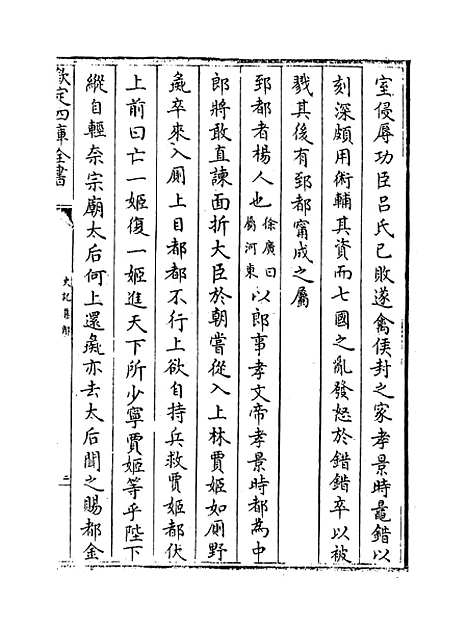 室侵辱功臣吕氏已敗遂禽侯封之家孝景時鼂錯以
刻深頗用術輔其資而七國之亂發怒於錯錯卒以被
戮其後有郅都甯成之屬
郅都者楊人也徐廣曰屬河東以郎事孝文帝孝景時都為中
郎將敢直諫面折大臣於朝嘗從入上林賈姬如厠野
彘卒來入厠上目都都不行上欲自持兵救賈姬都伏
上前曰亡一姬復一姬進天下所少寧賈姬等乎陛下
縱自輕奈宗廟太后何上還彘亦去太后聞之賜都金
欽定四庫全書
史記集解
二